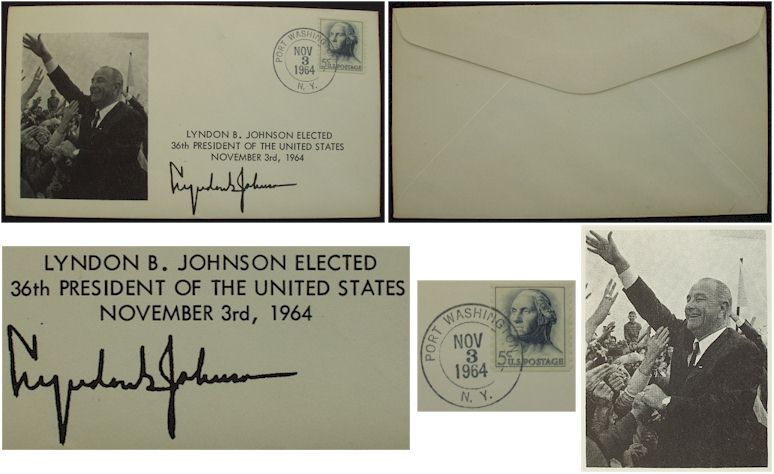 PORT WASHING
NOV
3
1964
N. Y.
5c U.S. POSTAGE
LYNDON B. JOHNSON ELECTED
36th PRESIDENT OF THE UNITED STATES
NOVEMBER 3rd, 1964
Lyndon B Johnson
LYNDON B. JOHNSON ELECTED
36th PRESIDENT OF THE UNITED STATES
NOVEMBER 3rd, 1964
Lyndon B Johnson
PORT WASHING
NOV
3
1964
N. Y.
5c
U.S. POSTAGE